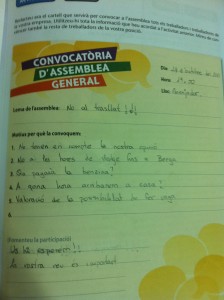 Redacteu ara el cartell que servirà per convocar a l'assemblea tots els treballadors i treballadores de
la vostra empresa. Utilitzeu-hi tota la informació que heu acordat a l'activitat anterior.
convèncer també la resta de treballadors de la vostra posició.
CONVOCATÒRIA
D'ASSEMBLEA
GENERAL
Dia:
Hora:
Lloc: Menjador
Lema de l'assemblea: No al trasllat!
Motius per què la convoquem:
1. No tenen en compte la nostra opinió
2. No ni les hores de viatge fins a Berga
3. Qui pagarà la benzina?
4. A quina hora arribarem a casa?
5. Valoració de la possibilitat de fer vaga
6.
Fomenteu la participació
Us hi esperem!!
La vostra veu és important